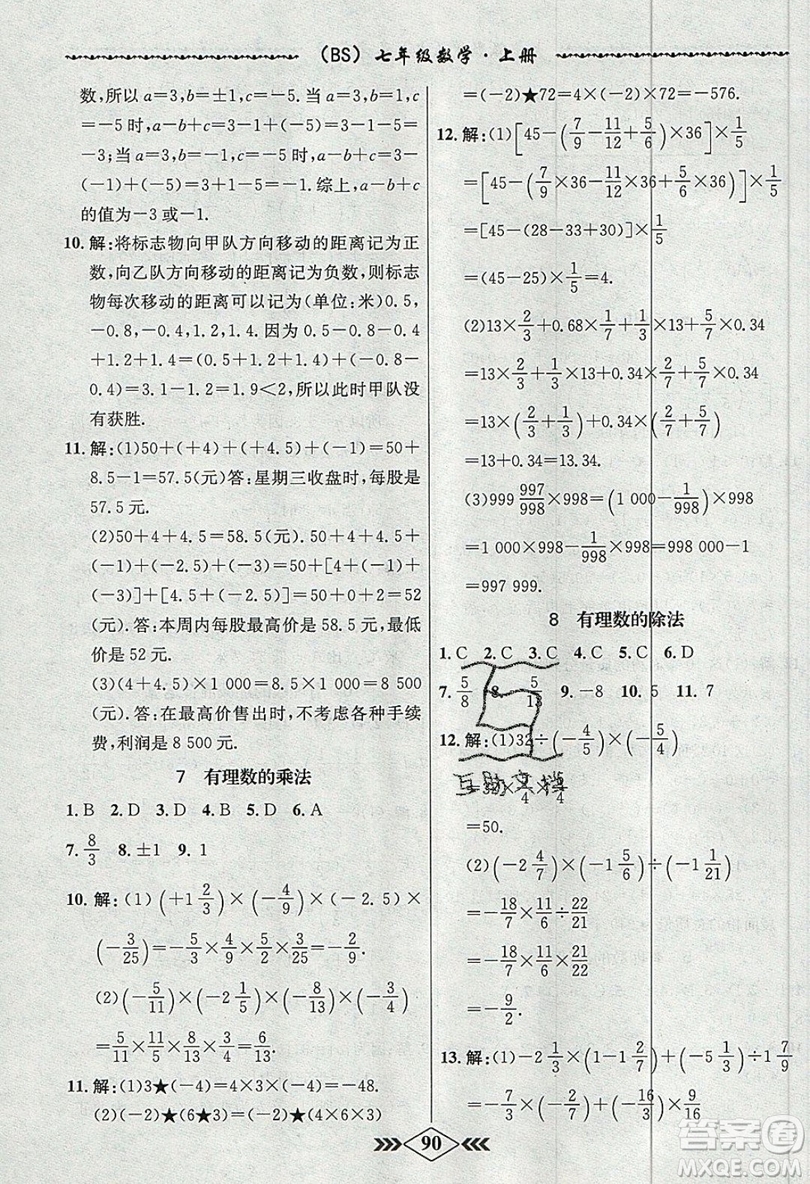 (BS) 七年级数学·上册
数,所以 a=3,b=±1,c=-5. 当 a=3,b=1,c
=-5 时,a-b+c=3-1+(-5)=3-1-5=
-3;当 a=3,b=-1,c=-5 时,a-b+c=3-
(-1)+(-5)=3+1-5=-1. 综上,a-b+c
的值为-3 或-1.
10. 解:将标志物向甲队方向移动的距离记为正
数,向乙队方向移动的距离记为负数,则标志
物每次移动的距离可以记为(单位:米)0.5,
-0.8,-0.4,1.2,1.4. 因为 0.5-0.8-0.4
+1.2+1.4=0.5+1.2+1.4-0.8-0.4=
3.1-0.8-0.4=3.1-1.2=1.9<2,
所以此时甲队没
有获胜.
11. 解:(1)50+(+4)+(+4.5)+(-1)=50+
8.5-1=57.5(元)答:星期三收盘时,每股是
57.5 元.
(2)50+4+4.5=58.5(元). 50+4+4.5+
(-1)+(-2.5)+(-3)=50+4+[(-1)+
(-3)]+[4.5+(-2.5)+(-2)]=50+0+2=52
(元). 答:本周内每股最高价是 58.5 元,最低
价是 52 元.
(3)(4+4.5)×1 000=8.5×1 000=8 500
(元)答:在最高价售出时,不考虑各种手续
费,利润是 8 500 元.
7 有理数的乘法
1. B 2. D 3. D 4. B 5. D 6. A
7. 8/3 8. ±1 9. 1
10. 解:(1)(+1 2/3)×(-4/9)×(-2.5)×
(-3/25)=-5/3×4/9×5/2×3/25=-2/9.
(2)(-5/11)×(-2 1/5)×(-8/13)×(-3/4)
=5/11×11/5×8/13×3/4=6/13.
11. 解:(1)3★(-4)=4×3×(-4)=-48.
(2)(-2)★(6★3)=(-2)★(4×6×3)
=(-2)★72=4×(-2)×72=-576.
12. 解:(1)[45-(7/9-11/12+5/6)×36]×1/5
=[45-(7/9×36-11/12×36+5/6×36)]×1/5
=[45-(28-33+30)]×1/5
=(45-25)×1/5=4.
(2)13×2/3+0.68×1/3×13+5/7×0.34
=13×2/3+1/3×13+2/7×0.34+5/7×0.34
=13×(2/3+1/3)+0.34×(2/7+5/7)
=13+0.34=13.34.
(3)999 997/998×998=(1 000-1/998)×998
=1 000×998-1/998×998=998 000-1
=997 999.
8 有理数的除法
1. C 2. C 3. C 4. C 5. C 6. D
7. 5/8 8. 5/13 9. -8 10. 5 11. 7
12. 解:(1)32÷(-4/5)×(-5/4)
互助文档
=50.
(2)(-2 4/7)×(-1 5/6)÷(-1 1/21)
=-18/7×11/6÷22/21
=-18/7×11/6×21/22
=-9/2.
13. 解:(1)-2 1/3×(-1-1 2/7)÷(-1 7/9)
=-7/3×(-2 2/7)÷(-16/9)
90
答案圈
MXQE.COM